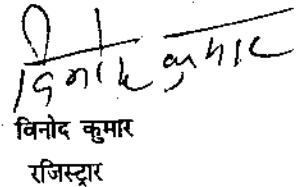 विनोद कुमार
विनोद कुमार
रजिस्ट्रार